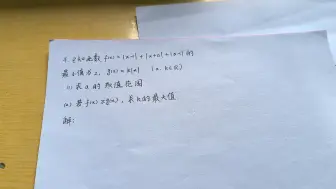 不. 已知函数 f(x)=|x-1|+|x+a|+|x-1| 的
最小值为2, g(x)=k|x| (a, k∈R)
(1) 求a的取值范围
(2) 若f(x)≥g(x), 求k的最大值
解: